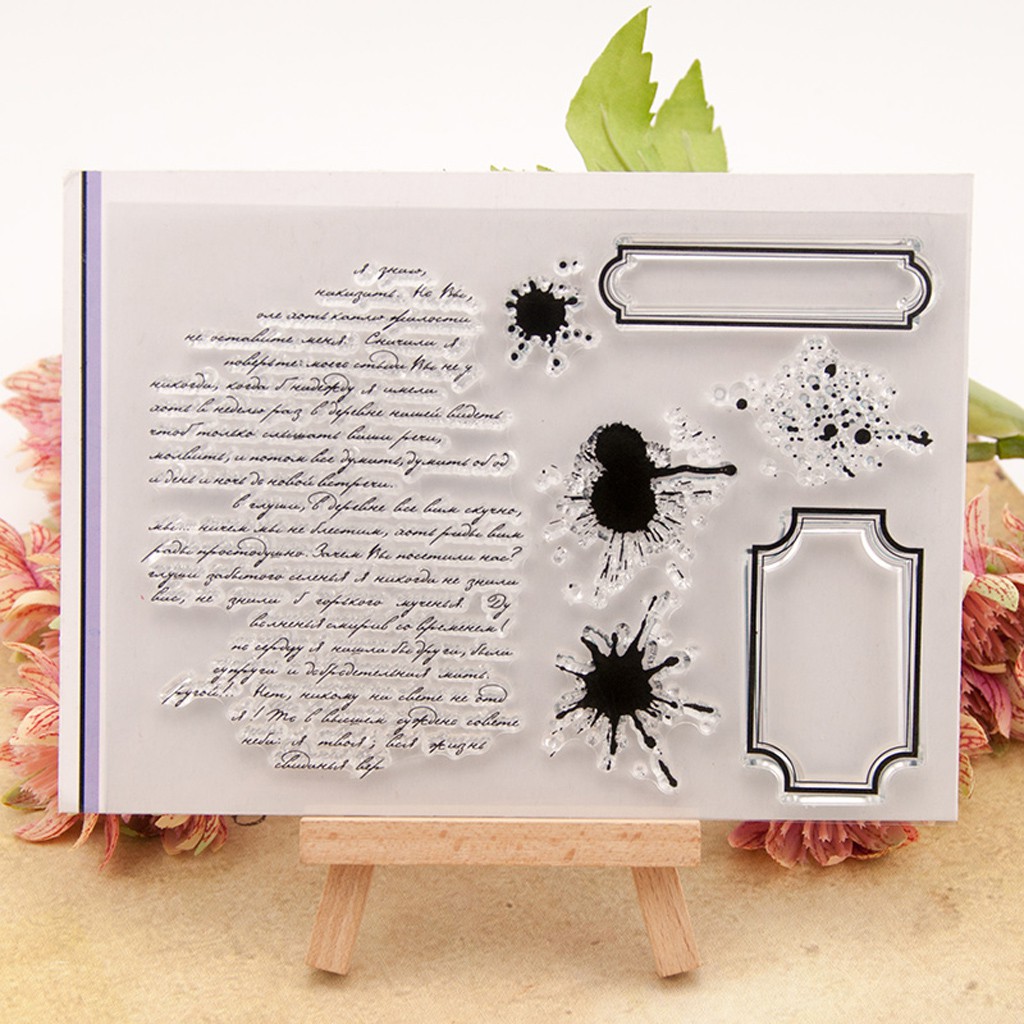 я знаю,
наказать. Но Вы,
оле хоть каплю жалости
не оставите меня. Сначала я
поверьте: моего стыда Вы не у
никогда, когда б надежду я имела
хоть в неделю раз в деревне нашей видеть
чтоб только слышать ваши речи,
молвить, и потом все думать, думать об од
и день и ночь до новой встречи.
в глуши, в деревне все вам скучно,
мы... ничем мы не блестим, хоть рады вам
рады простодушно. Зачем Вы посетили нас?
глуши забытого селенья я никогда не знала
вас, не знала б горького мученья. Ду
волненья смирив со временем!
по сердцу я нашла бы друга, была
супруга и добродетельная мать.
ругой!. Нет, никому на свете не отд
я! То в вышнем суждено совете
неба: я твоя; вся жизнь
свиданья вер